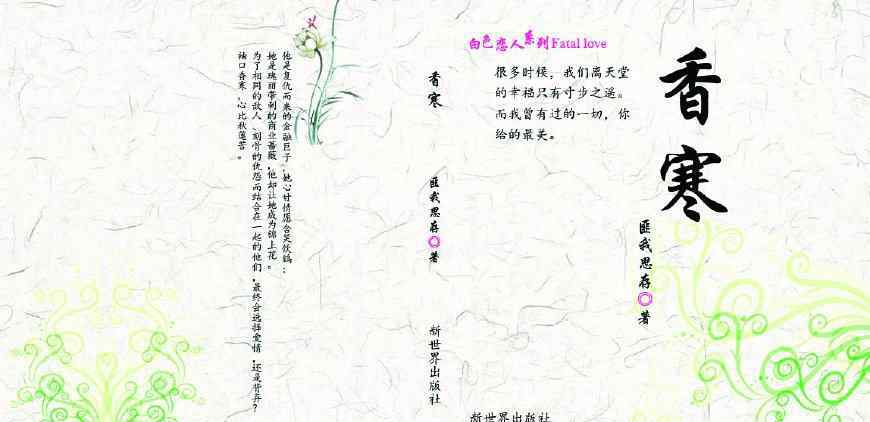 白色恋人系列Fatal love
很多时候，我们离天堂
的幸福只有寸步之遥。
而我曾有过的一切，你
给的最美。
香寒
匪我思存◎著
新世界出版社
香寒
匪我思存◎著
新世界出版社
他是复仇而来的金融巨子，她心甘情愿含笑饮鸩；
她是瑰丽带刺的商业蔷薇，他却让她成为锦上花。
为了相同的敌人、刻骨的仇怨而结合在一起的他们，最终会选择爱情，还是背弃？
袖口香寒，心比秋莲苦。